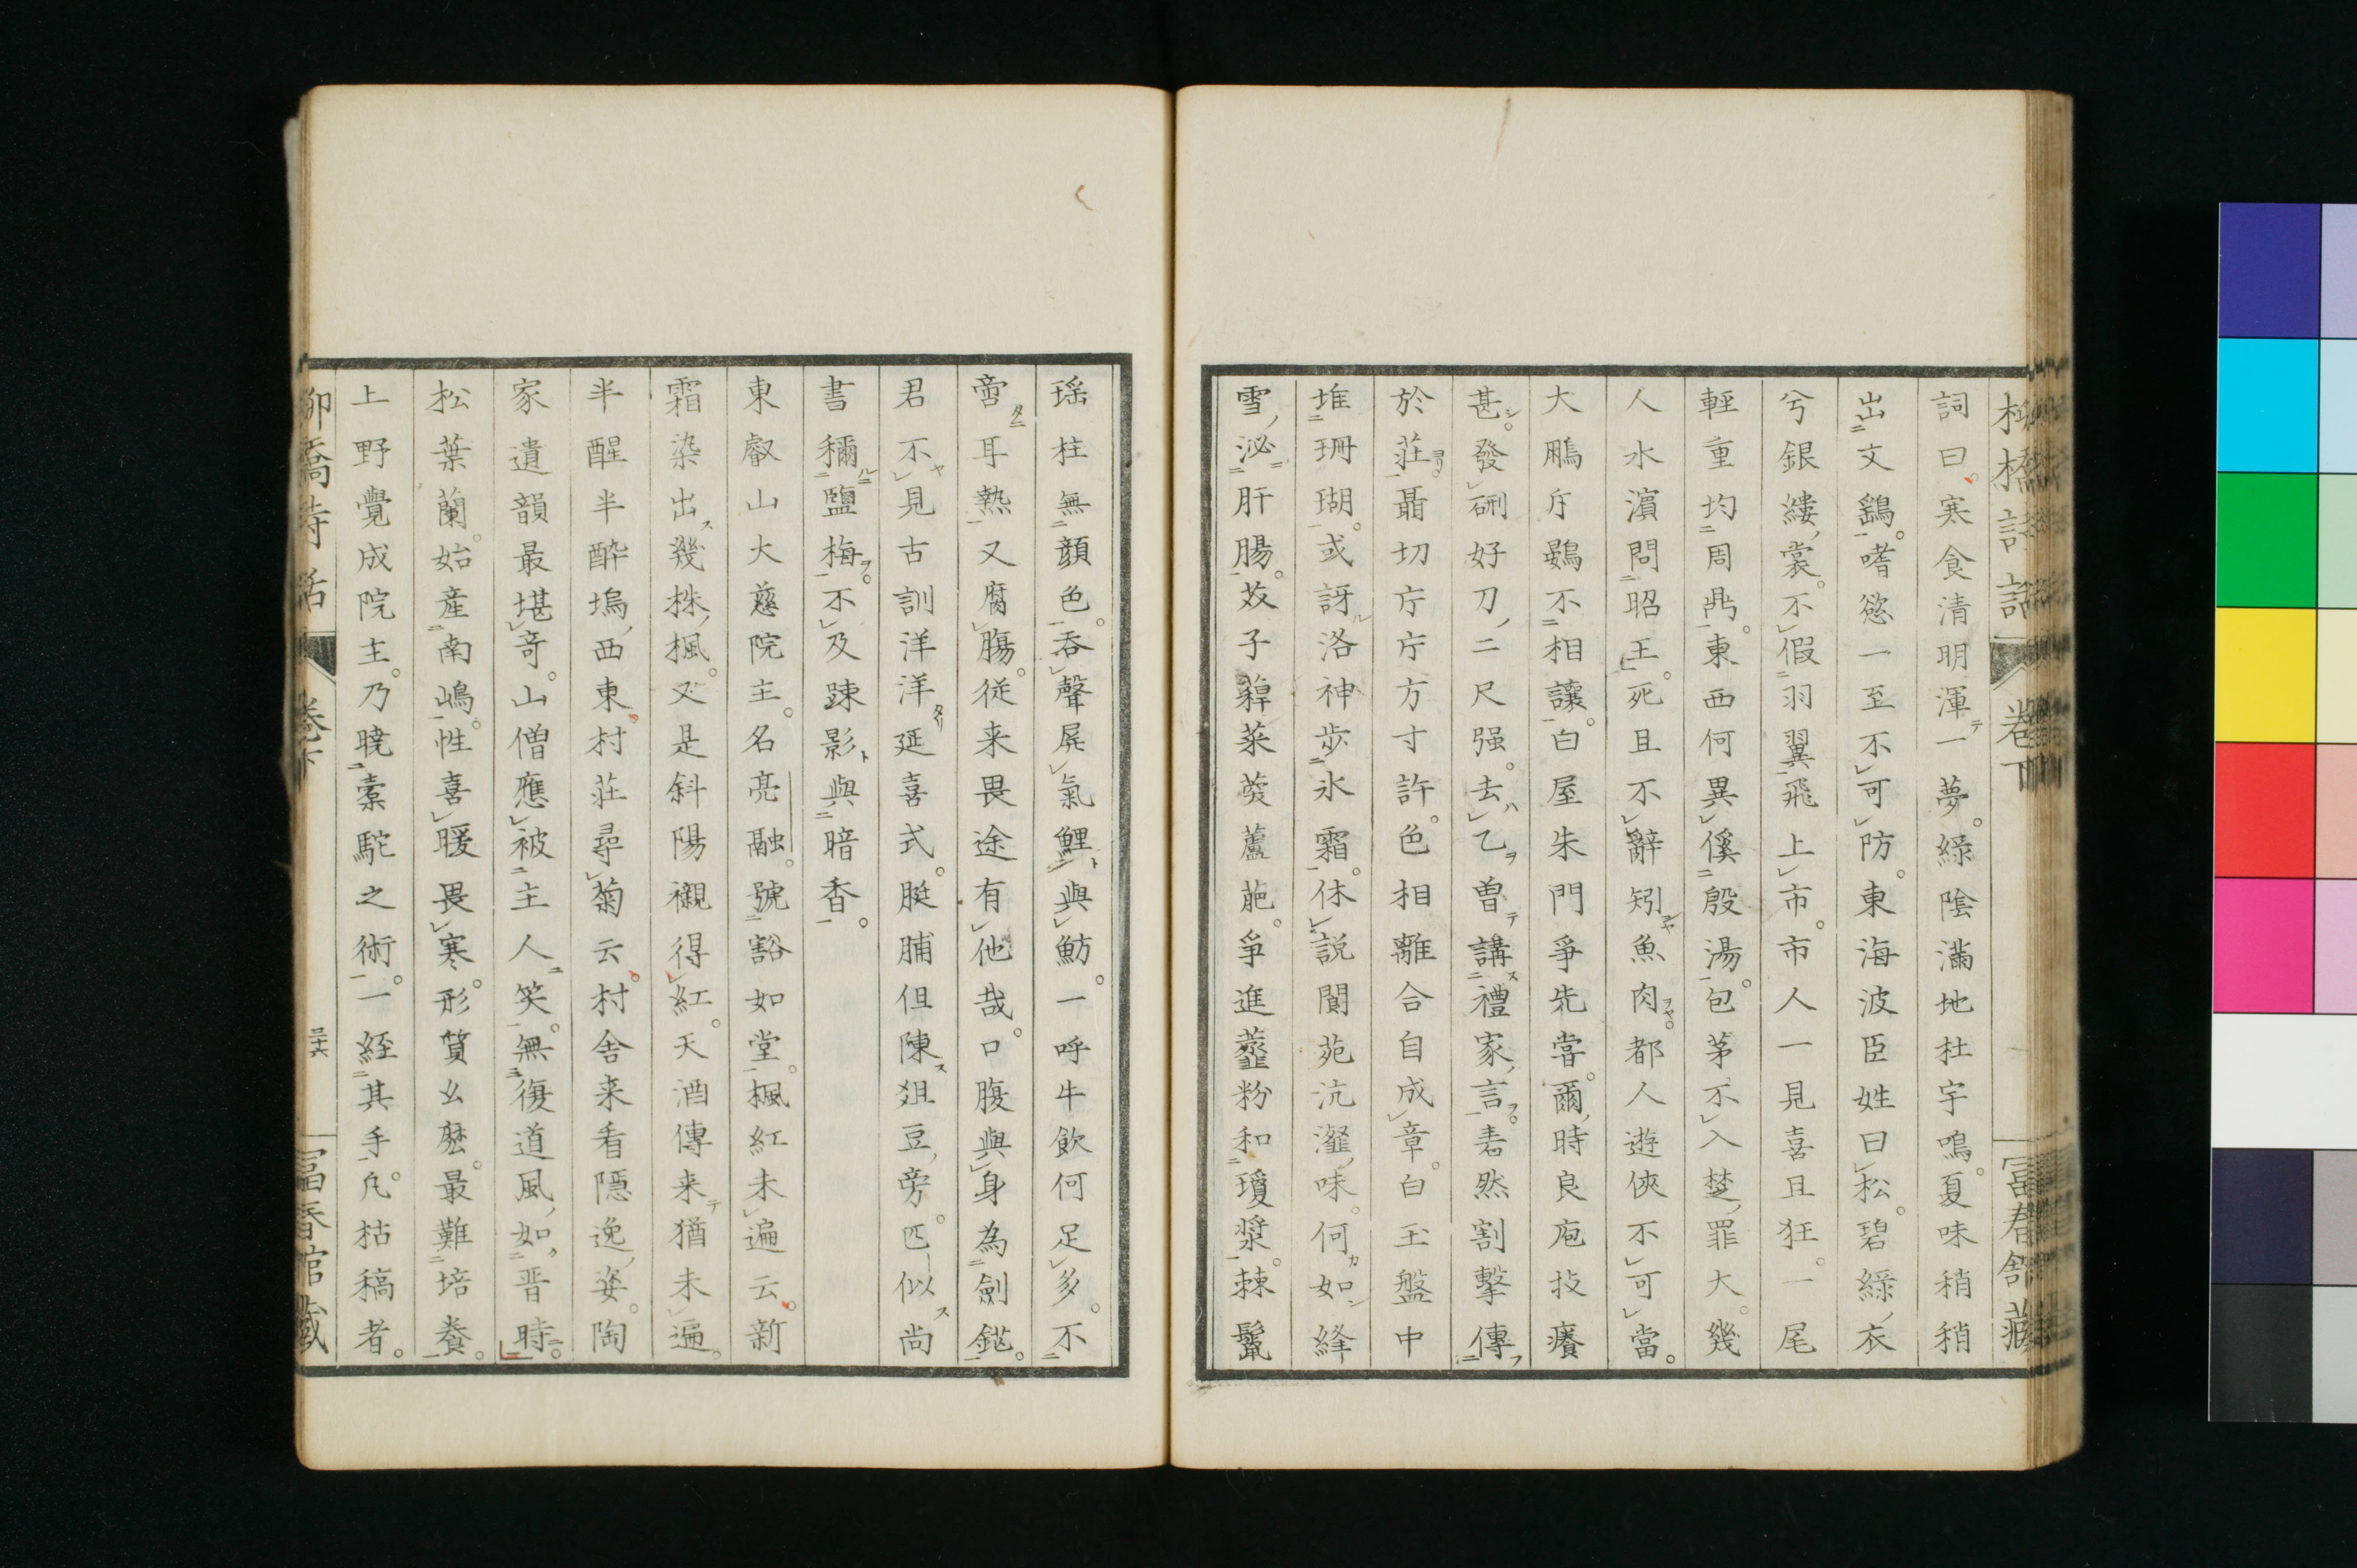 詞曰。寒食清明渾一夢。緑陰滿地杜宇鳴。夏味稍稍
出文鷂。嗜慾一至不可防。東海波臣姓曰松。碧緑衣
兮銀縷裳。不假羽翼飛上市。市人一見喜且狂。一尾
輕重均周鼎。東西何異傒殷湯。包茅不入楚罪大。幾
人水濵問昭王。死且不辭矧魚肉。都人遊俠不可當。
大鵬斥鷃不相讓。白屋朱門爭先甞。爾時良庖技癢
甚。發硎好刀二尺强。去乙曽講禮家言。砉然割擊傳
於莊。聶切片片方寸許。色相離合自成章。白玉盤中
堆珊瑚。或訝洛神步氷霜。休説閬苑沆瀣味。何如絳
雪泌肝腸。芥子蔊菜茭蘆葩。爭進虀粉和瓊漿。棘鬣
瑶柱無顔色。吞聲屏氣鯉與魴。一呼牛飲何足多。不
啻耳熱又腐腸。従来畏途有他哉。口腹與身為劍鋩。
君不見古訓洋洋延喜式。脡脯但陳俎豆旁。匹似尚
書稱鹽梅。不及踈影與暗香。
東叡山大慈院主。名亮融。號豁如堂。楓紅未遍云。新
霜染出幾株楓。又是斜陽襯得紅。天酒傳来猶未遍。
半醒半酔塢西東。村莊尋菊云。村舎来看隠逸姿。陶
家遺韻最堪奇。山僧應被主人笑。無復道風如晋時。
松葉蘭。始産南嶋。性喜暖畏寒。形質幺麽。最難培養。
上野覺成院主。乃曉橐駝之術。一経其手。凡枯稿者。
柳橋詩話
卷下
富春館藏
柳橋詩話
卷下
三十六
富春館藏